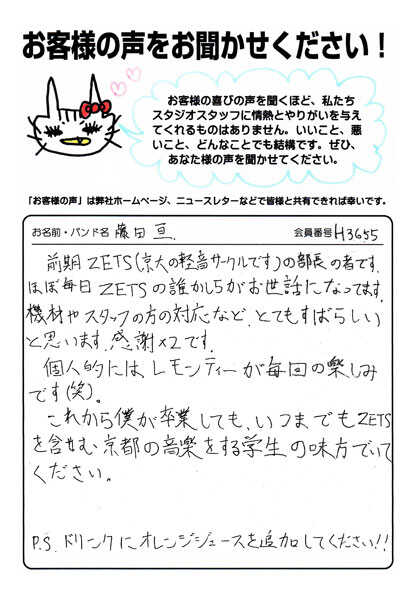 お客様の声をお聞かせください！
お客様の喜びの声を聞くほど、私たち
スタジオスタッフに情熱とやりがいを与え
てくれるものはありません。いいこと、悪
いこと、どんなことでも結構です。ぜひ、
あなた様の声を聞かせてください。
「お客様の声」は弊社ホームページ、ニュースレターなどで皆様と共有できれば幸いです。
お名前・バンド名 藤田 亘 会員番号 H3655
前期ZETS(京大の軽音サークルです)の部長の者です。
ほぼ毎日ZETSの誰かしらがお世話になってます。
機材やスタッフの方の対応など、とてもすばらしい
と思います。感謝×2です。
個人的にはレモンティーが毎回の楽しみ
です(笑)。
これから僕が卒業しても、いつまでもZETS
を含む、京都の音楽をする学生の味方でいて
ください。
P.S. ドリンクにオレンジジュースを追加してください!!